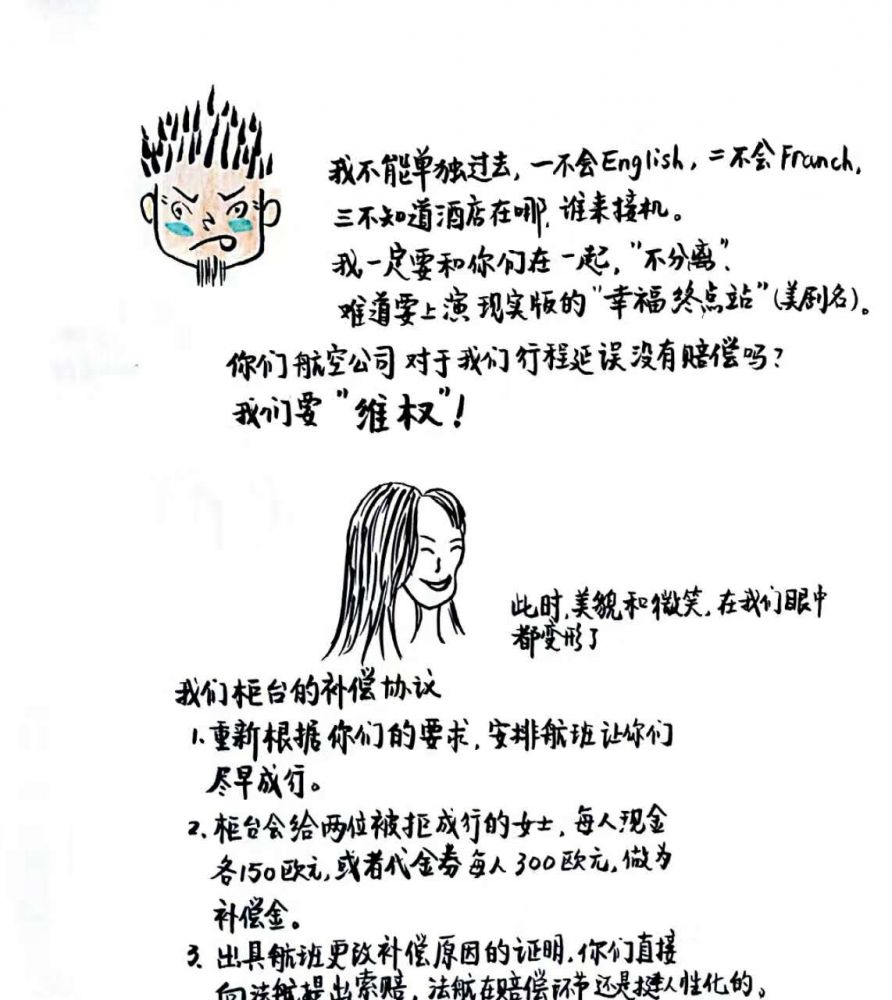 我不能单独过去，一不会English，二不会Franch，
三不知道酒店在哪，谁来接机。
我一定要和你们在一起，"不分离"。
难道要上演现实版的"幸福终点站"(美剧名)。
你们航空公司对于我们行程延误没有赔偿吗？
我们要"维权"！
此时，美貌和微笑，在我们眼中
都变形了
我们柜台的补偿协议
1、重新根据你们的要求，安排航班让你们
尽早成行。
2、柜台会给两位被拒成行的女士，每人现金
各150欧元，或者代金券每人300欧元，做为
补偿金。
3、出具航班更改补偿原因的证明，你们直接
向法航提出索赔，法航在赔偿环节还是挺人性化的。